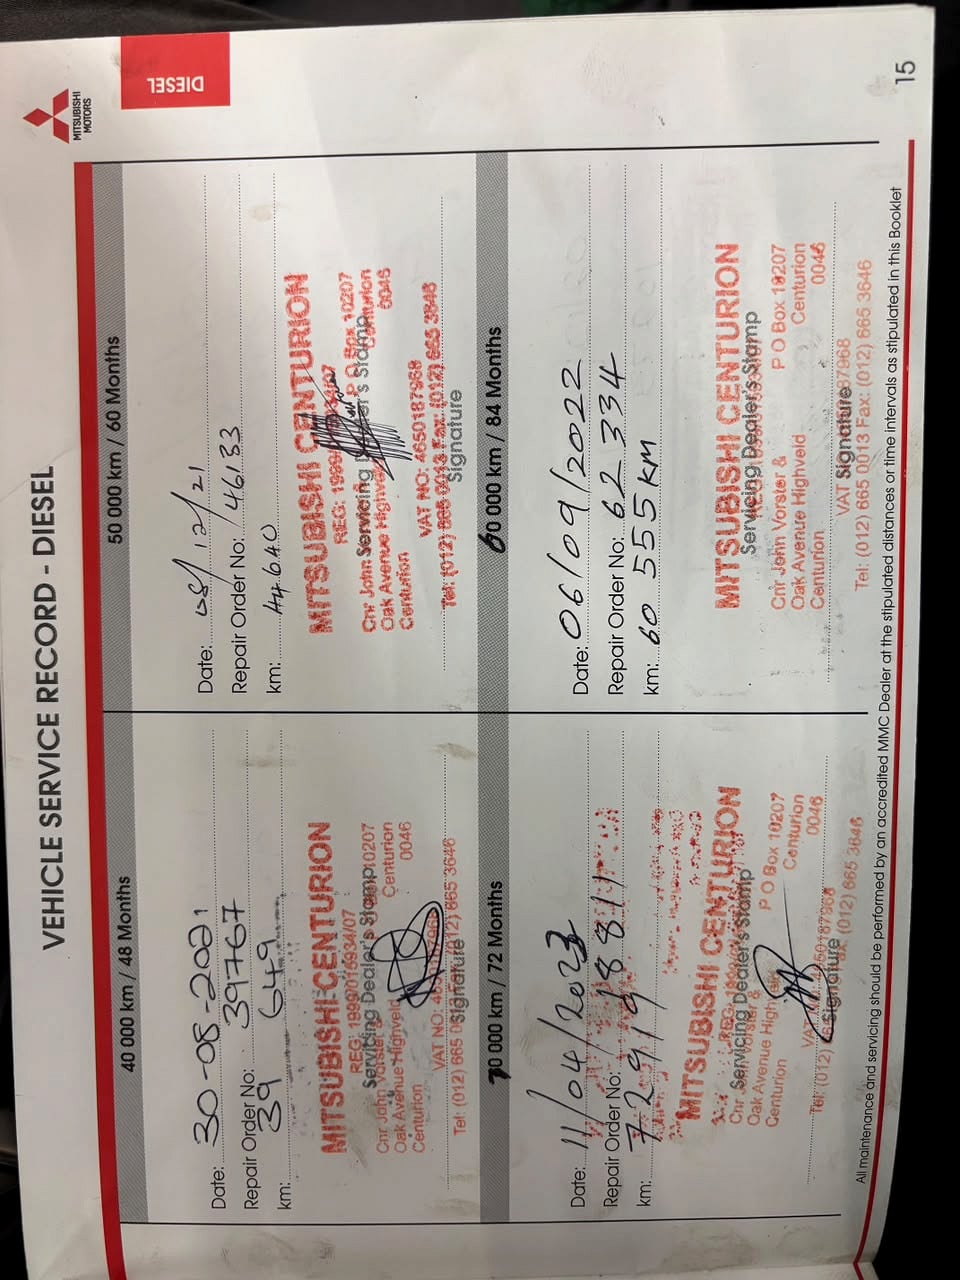 VEHICLE SERVICE RECORD - DIESEL
MITSUBISHI
MOTORS
DIESEL
40 000 km / 48 Months
Date: 30-08-2021
Repair Order No: 39767
km: 39 649
MITSUBISHI CENTURION
REG: 1999/015934/07
Servicing Dealer's Stamp
Cnr John Vorster & P O Box 10207
Oak Avenue Highveld Centurion
Centurion 0046
VAT NO: 4650187968
Tel: (012) 665 0013 Fax: (012) 665 3646
Signature
50 000 km / 60 Months
Date: 08/12/21
Repair Order No: 46133
km: 44640
MITSUBISHI CENTURION
REG: 1999/015934/07
Servicing Dealer's Stamp
Cnr John Vorster & P O Box 10207
Oak Avenue Highveld Centurion
Centurion 0046
VAT NO: 4650187968
Tel: (012) 665 0013 Fax: (012) 665 3646
Signature
70 000 km / 72 Months
Date: 11/04/2023
Repair Order No:
km: 72919
MITSUBISHI CENTURION
Servicing Dealer's Stamp
Cnr John Vorster & P O Box 10207
Oak Avenue Highveld Centurion
Centurion 0046
VAT 4650187968
Signature
Tel: (012) 665 Fax: (012) 665 3646
60 000 km / 84 Months
Date: 06/09/2022
Repair Order No: 62 334
km: 60 555 km
MITSUBISHI CENTURION
Servicing Dealer's Stamp
Cnr John Vorster & P O Box 10207
Oak Avenue Highveld Centurion
Centurion 0046
VAT 87968
Signature
Tel: (012) 665 0013 Fax: (012) 665 3646
All maintenance and servicing should be performed by an accredited MMC Dealer at the stipulated distances or time intervals as stipulated in this Booklet
15